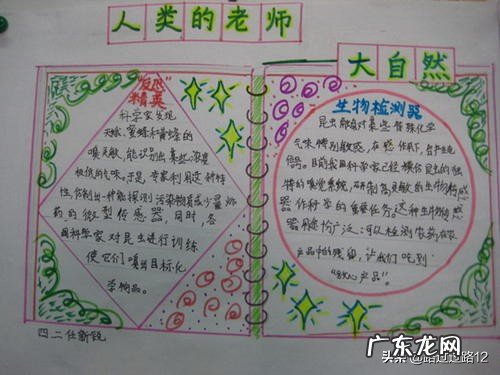 人类的老师
大自然
"反恐"
精英
科学家发现
天蛾、蜜蜂和黄蜂的
嗅觉灵敏,能识别出某些浓度
极低的气味,于是,专家利用这种特
性仿制出一种能探测污染物质或少量炸
药的微型传感器。同时,各
国科学家对昆虫进行训练
使它们嗅出目标化
学物品。
生物检测器
昆虫都会对某些特殊化学
气味特别敏感,在
器。目前我国科学家已经模仿昆虫的独
特的嗅觉系统,研制高灵敏的生物传感
器作科学的重要任务。这种生物传感
器用途广泛:可以检测农药在农
产品中的残留,让我们吃到
"放心产品"。
四二 任新锐
头条@路过这路12
广东龙网